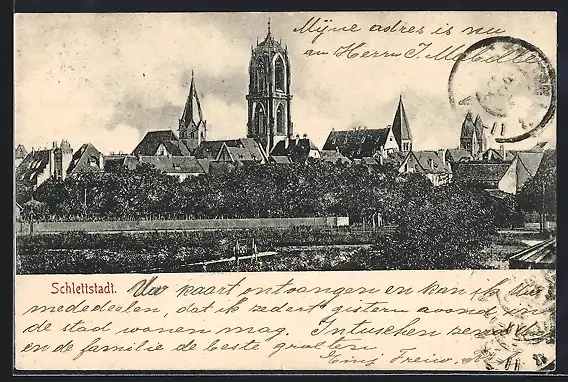 Mijne adres is nu
an Herrn J. M
Schlettstadt.
Uw kaart ontvangen en kan ik Uw
mededeelen, dat ik zedert gistern avond, in
de stad wonen mag. Intuschen
en de familie de beste groeten